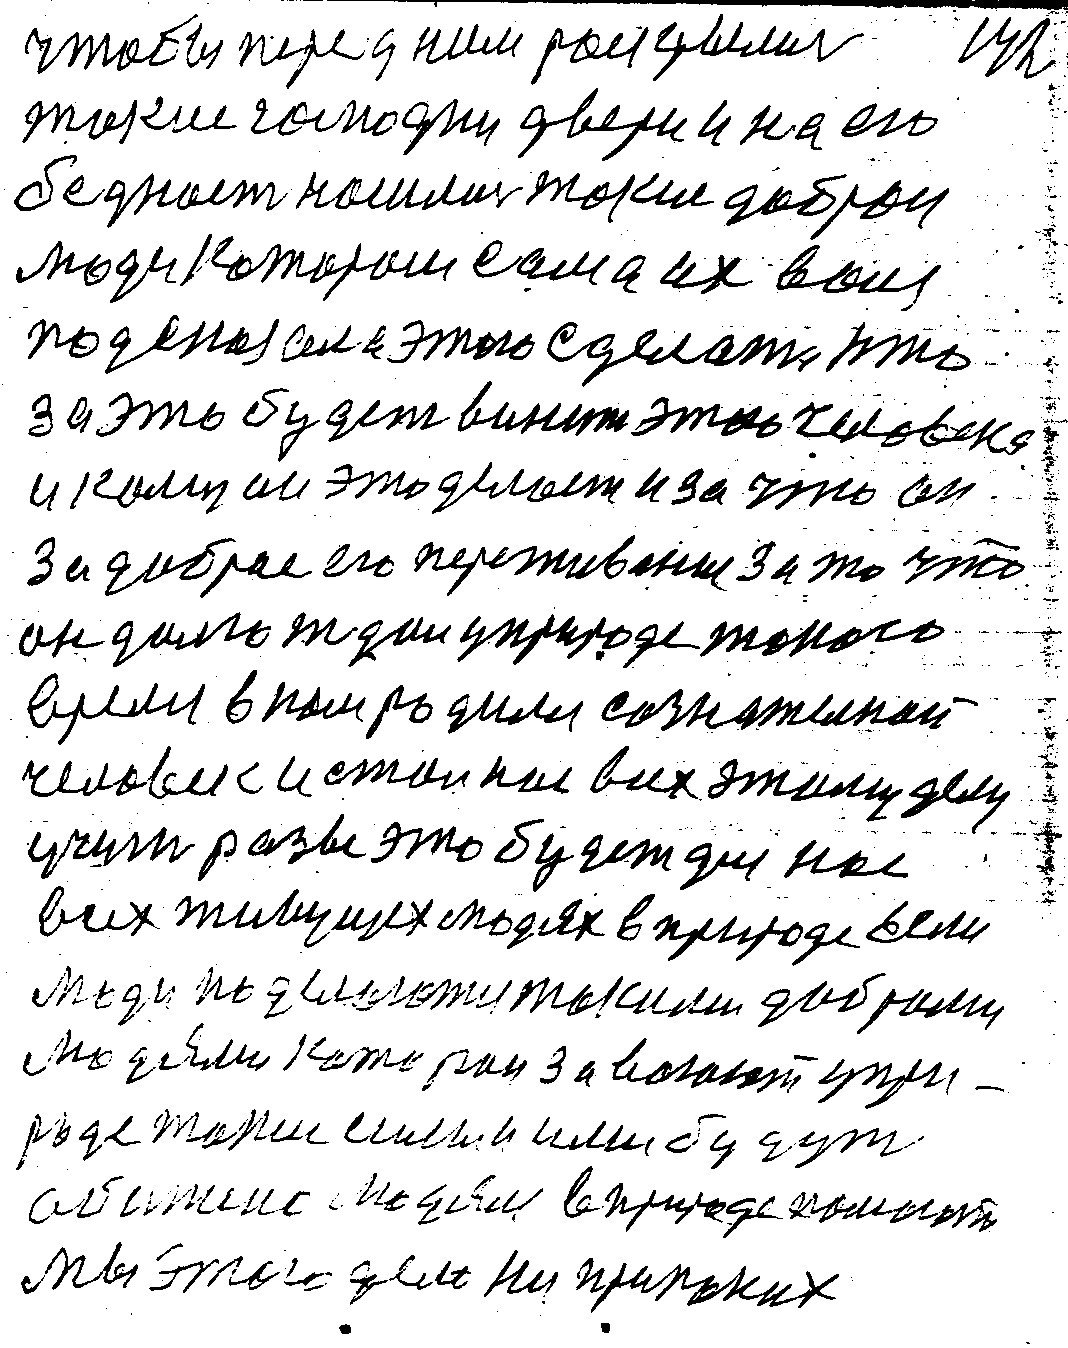 чтобы перед ним раскрылис 142
такие господни двери и на его
беднаст нашлис такие доброи
люди котораи сама их воия
поденая сала этого сделат Кто
за это будет винит этого человека
и кому он это делает и за что он
за доброе его переживание за то что
он долго ждал у природе такого
время в нам родили сознателной
человек и стал нас всех этому делу
учит разве это будет для нас
всех живущех людях в природе если
люди поделаются такими добрыми
людями которои завоюют у при-
роде такие силы и ими будут
обижено людям в природе помогат
мы этого дела ни при каких